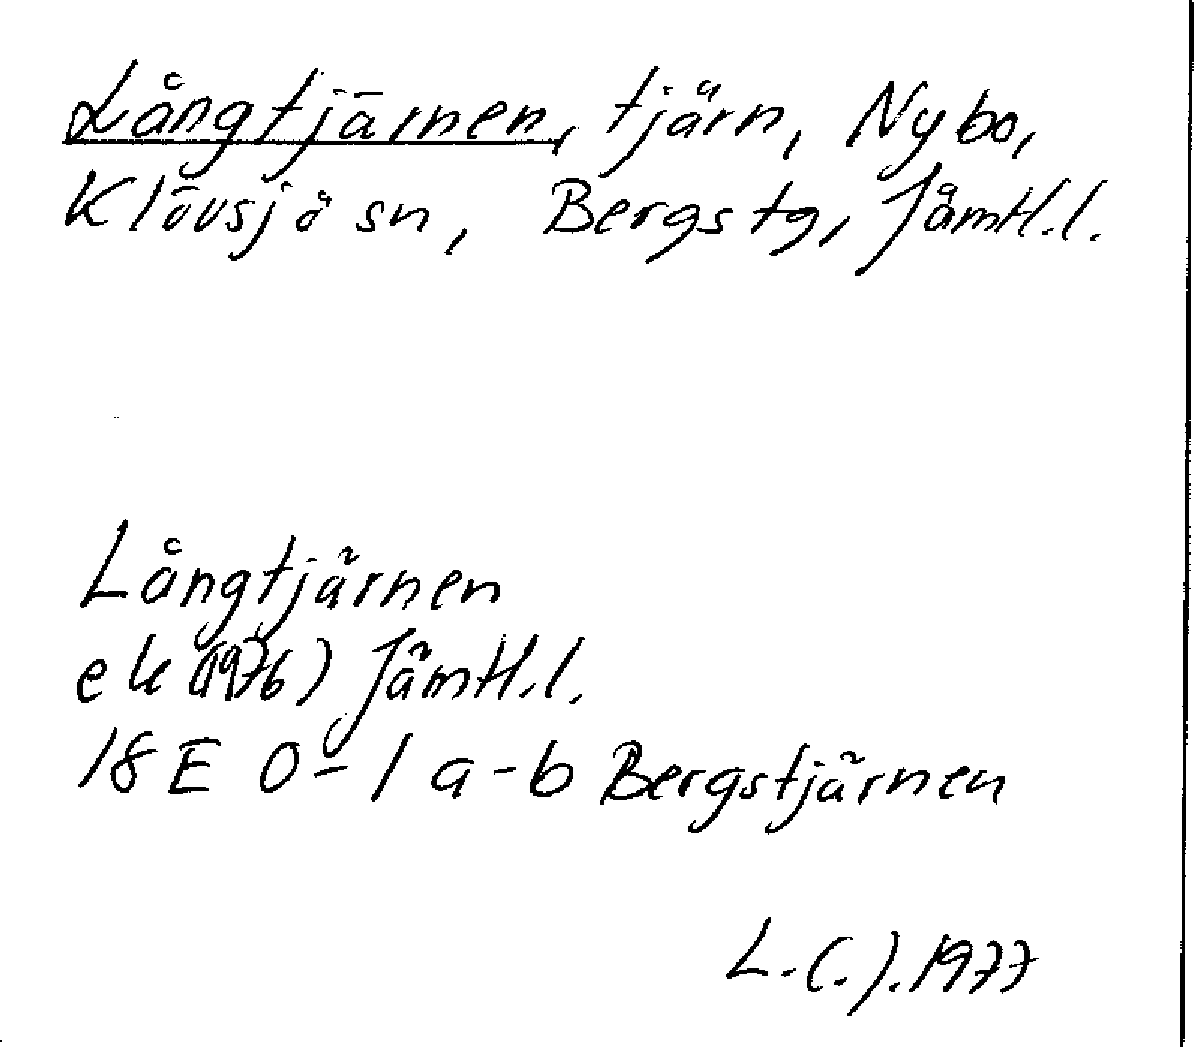 Långtjärnen, tjärn, Nybo,
Klövsjö sn, Bergs tg, Jämtl.l.
Långtjärnen
ek (1976) Jämtl.l.
18 E 0-1 a-b Bergstjärnen
L.C.J.1977